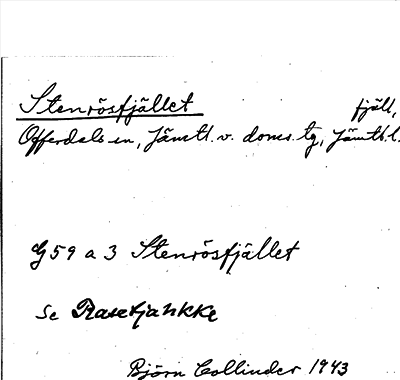 Stenrösfjället fjäll,
Offerdals sn, Jämtl. v. doms. tg, Jämtl. l.
G 59 a 3 Stenrösfjället
Se Rasetjahkke
Björn Collinder 1943